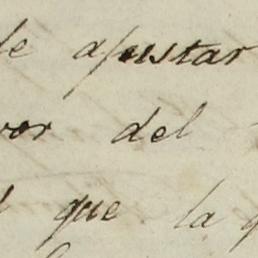 de apustar
vor del
que la